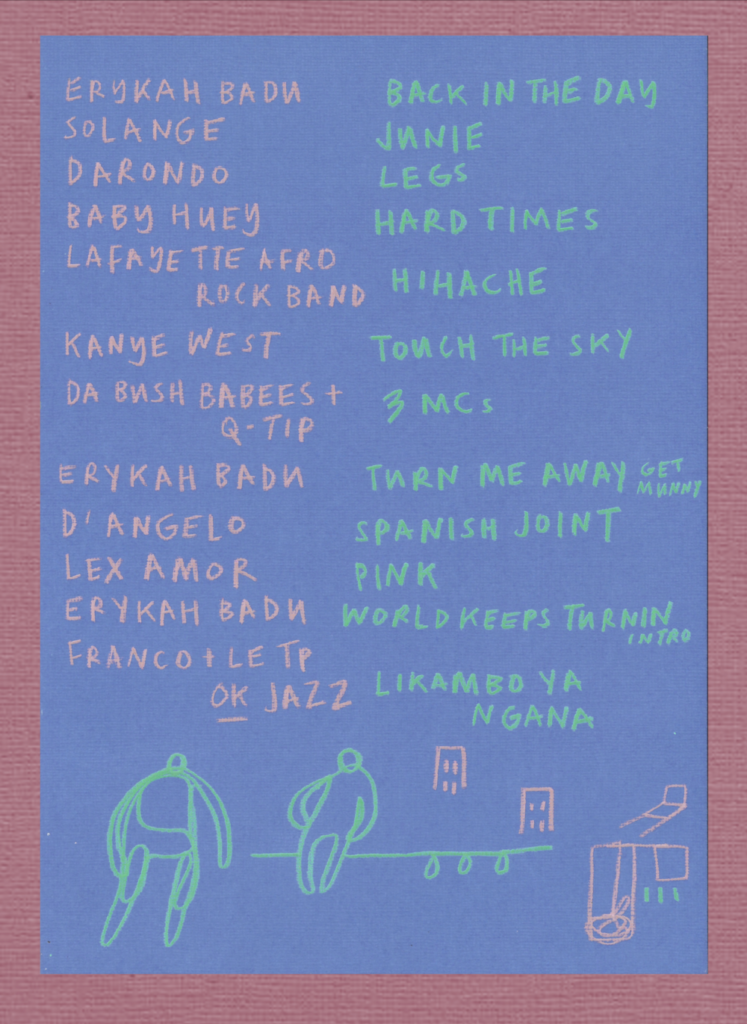 ERYKAH BADU BACK IN THE DAY
SOLANGE JUNIE
DARONDO LEGS
BABY HUEY HARD TIMES
LAFAYETTE AFRO
ROCK BAND HIHACHE
KANYE WEST TOUCH THE SKY
DA BUSH BABEES +
Q-TIP 3 MCs
ERYKAH BADU TURN ME AWAY GET
MUNNY
D'ANGELO SPANISH JOINT
LEX AMOR PINK
ERYKAH BADU WORLD KEEPS TURNIN
INTRO
FRANCO + LE TP
OK JAZZ LIKAMBO YA
NGANA